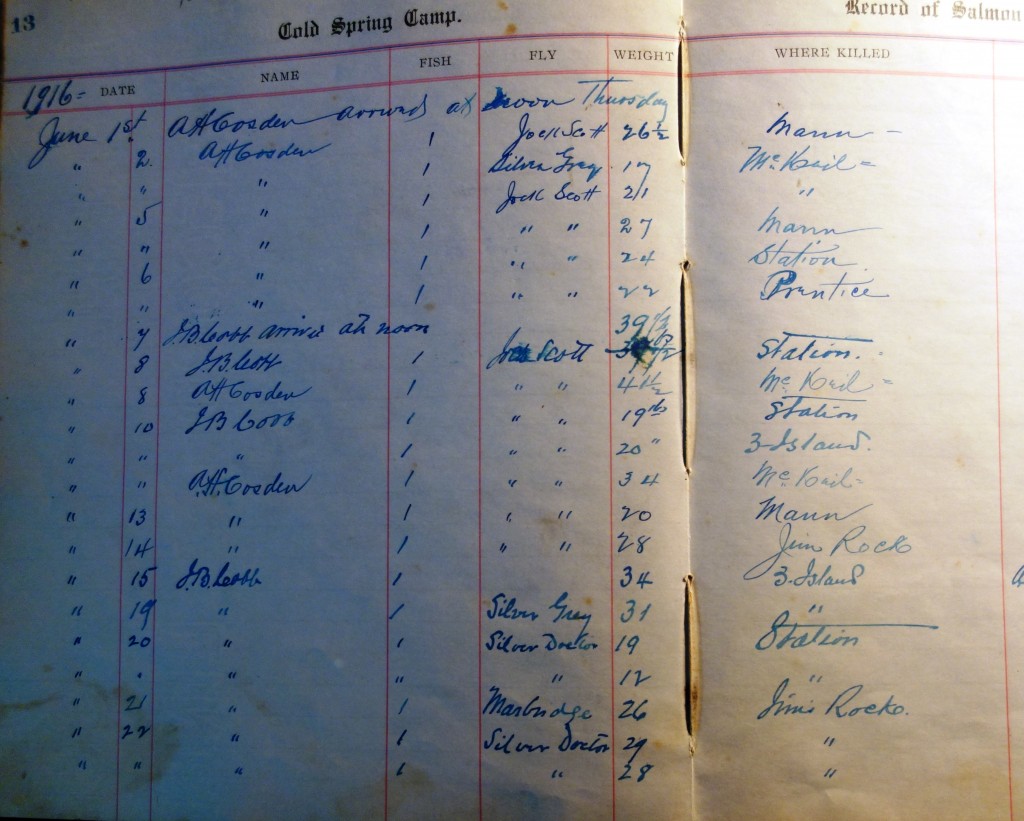 13 Cold Spring Camp. Record of Salmon
DATE NAME FISH FLY WEIGHT WHERE KILLED
1916- A H Cosden arrived at noon Thursday
June 1st. 1 Jock Scott 26½ Mann -
" 2. A H Cosden 1 Silver Grey 17 McKeil =
" " " 1 Jock Scott 21 "
" 5 " 1 " " 27 Mann
" " " 1 " " 24 Station
" 6 " 1 " " 22 Prentice
" " "
" 7 J.B. Cobb arrives at noon 39½
" 8 J.B. Cobb 1 Jock Scott Station.
" 8 A H Cosden 1 " " 41½ McKeil =
" 10 J B Cobb 1 " " 19 lb Station
" " " 1 " " 20 " 3-Island.
" " A.H. Cosden 1 " " 34 McKeil -
" 13 " 1 " " 20 Mann
" 14 " 1 " " 28 Jim's Rock
" 15 J.B. Cobb 1 34 3-Island
" 19 " 1 Silver Grey 31 "
" 20 " 1 Silver Doctor 19 Station
" " " " " 12 "
" 21 " 1 26 Jim's Rock.
" 22 " 1 Silver Doctor 29 "
" " " 1 " 28 "